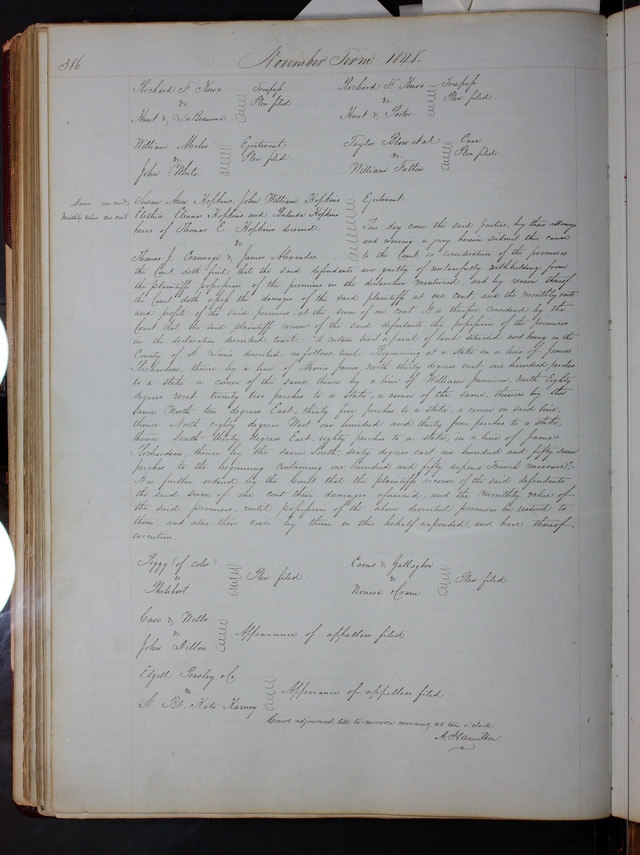 386
November Term 1848.
Richard F. Knox
vs
Hunt & LaBeaume
Trespass
Plea filed
Richard F. Knox
vs
Hunt & Porter
Trespass
Plea filed.
William Milos
vs
John White
Ejectment
Plea filed.
Taylor Blow et al
vs
William Fulton
Case.
Plea filed.
Dams one cent
Monthly value one cent
Susan Ann Hopkins, John William Hopkins
Electra Eleanor Hopkins and Belinda Hopkins
heirs of Thomas E. Hopkins deceased.
vs
Thomas J. Crannage & James Alexander
Ejectment.
This day come the said parties, by their attorneys
and waiving a jury herein submit this cause
to the Court, on consideration of the premises
the Court doth find that the said defendants are guilty of unlawfully withholding from
the plaintiffs possession of the premises in the declaration mentioned, and by reason thereof
the Court doth assess the damages of the said plaintiffs at one cent, and the monthly rents
and profits of the said premises, at the sum of one cent. It is therefore considered by the
Court that the said plaintiffs recover of the said defendants the possession of the premises
in the declaration described, towit: A certain tract or parcel of land situated and being in the
County of St Louis described as follows towit: Beginning at a stake in a line of James
Richardson, thence by a line of Morris James, north thirty degrees east one hundred perches
to a stake a corner of the same, thence by a line of William Jamison, North Eighty
degrees west twenty two perches to a stake, a corner of the same, thence by the
same North ten degrees East, thirty five perches to a stake, a corner on said line,
thence North eighty degrees West one hundred and thirty four perches to a stake,
thence South thirty degrees East, eighty perches to a stake, in a line of James
Richardson, thence by the same South, sixty degrees east one hundred and fifty seven
perches to the beginning containing one hundred and fifty arpens French measure.
It is further ordered by the Court that the plaintiffs recover of the said defendants
the said sum of one cent their damages aforesaid, and the monthly value of
the said premises, until possession of the above described premises is restored to
them, and also their costs by them in this behalf expended, and have thereof
execution.
Peggy (of color)
vs
Philibert
Plea filed.
Coons & Gallagher
vs
Nourse & Crane
Plea filed
Case & Wells
vs
John Dillon
Appearance of appellees filed
Edgell Peasley & Co.
vs
St. Bt. Kate Karney
Appearance of appellees filed.
Court adjourned till to-morrow morning, at ten o'clock.
A. Hamilton